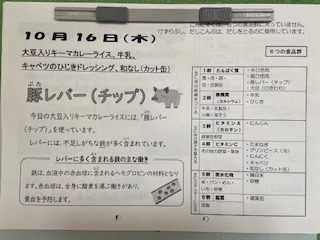 んでいません。
けずりぶし、だしこんぶは、だしをとるのに使用しています。
10月16日(木)
大豆入りキーマカレーライス、牛乳、
キャベツのひじきドレッシング、和なし(カット缶)
ぶた
豚レバー(チップ)
今日の大豆入りキーマカレーライスには、「豚レバー
(チップ)」を使っています。
レバーには、不足しがちな鉄が多く含まれています。
レバーに多く含まれる鉄の主な働き
鉄は、血液中の赤血球に含まれるヘモグロビンの材料となり
ます。赤血球は、全身に酸素を運ぶ働きがあり、
貧血を予防します。
6つの食品群
1群 たんぱく質
・牛ひき肉
・豚ひき肉
・豚レバー(チップ)
・大豆(ひきわり)
2群 無機質
(カルシウム)
・牛乳
・ひじき
3群 ビタミンA
(カロテン)
・にんじん
4群 ビタミンC
・たまねぎ
・グリンピース(冷)
・にんにく
・キャベツ
・和なし(缶)
5群 炭水化物
米・パン・めん・
いも・砂糖
・精白米
・砂糖
6群 脂質
油脂